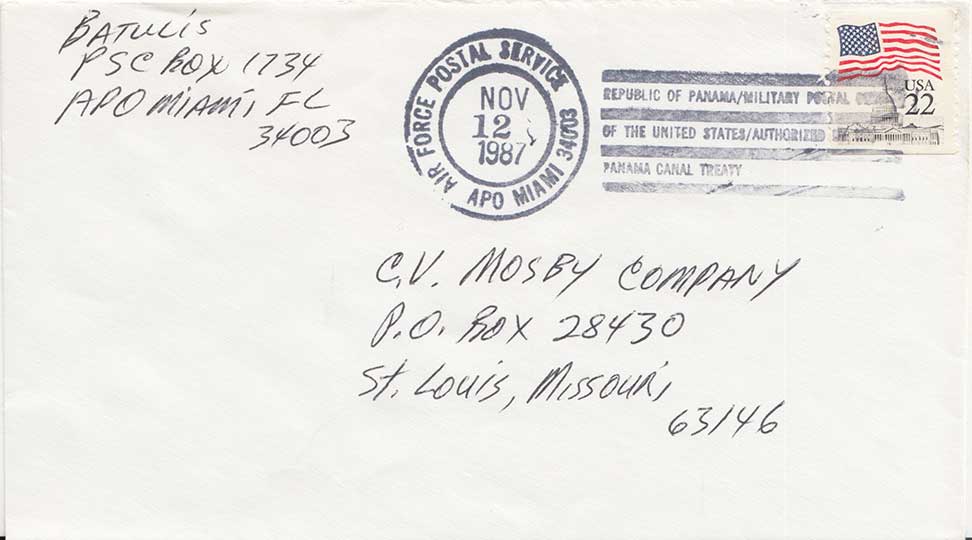 Batulis
PSC Box 1734
APO Miami, FL
34003
AIR FORCE POSTAL SERVICE
NOV
12
1987
APO MIAMI 34003
REPUBLIC OF PANAMA/MILITARY POSTAL
OF THE UNITED STATES/AUTHORIZED
PANAMA CANAL TREATY
USA
22
C.V. MOSBY COMPANY
P.O. BOX 28430
St. Louis, Missouri
63146